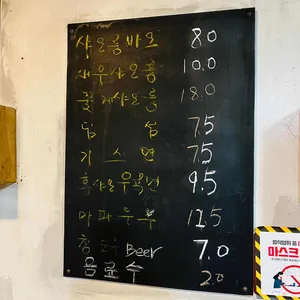 샤오롱바오 8.0
새우샤오롱 10.0
꽃게샤오롱 18.0
딤섬 7.5
기스면 7.5
홍샤오우육면 9.5
마파두부 11.5
Beer 7.0
음료수 2.0
마스크